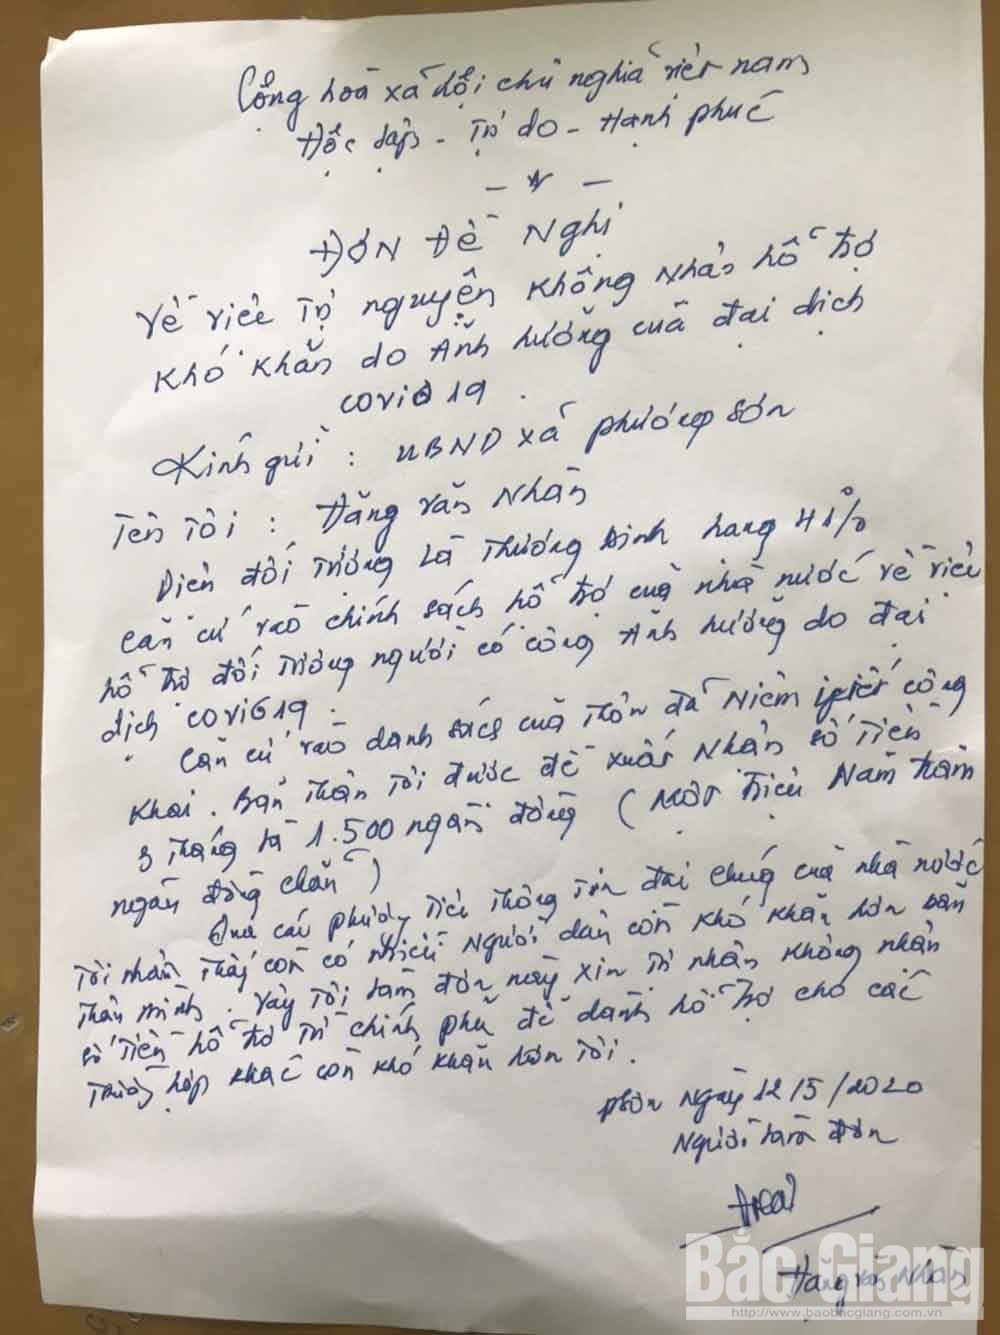 Cộng hoà xã hội chủ nghĩa việt nam
Độc lập - Tự do - Hạnh phúc
ĐƠN ĐỀ Nghị
Về việc Tự nguyện Không Nhận hỗ trợ
Khó Khăn do Ảnh hưởng của đại dịch
covid 19.
Kính gửi : UBND xã phượng sơn
Tên Tôi : Đặng văn Nhàn
Diện đối tượng Là Thương binh hạng 41%
Căn cứ vào chính sách hỗ trợ của nhà nước về việc
hỗ trợ đối tượng người có công Ảnh hưởng do đại
dịch covid 19.
Căn cứ vào danh sách của Thôn đã Niêm yết công
Khai. Bản Thân Tôi được đề xuất Nhận số tiền
3 Tháng là 1.500 ngàn đồng ( một triệu Năm trăm
ngàn đồng chẵn )
Qua các phương Tiện Thông Tin đại chúng của nhà nước
Tôi nhận Thấy còn có nhiều Người dân còn khó khăn hơn bản
Thân mình. Vậy Tôi làm đơn này xin Tự nhận không nhận
số Tiền hỗ trợ Từ chính phủ để dành hỗ trợ cho các
Trường hợp khác còn khó khăn hơn Tôi.
Ngày 12/5/2020
Người làm đơn
Đặng văn Nhàn
Bắc Giang
http://www.baobacgiang.com.vn/